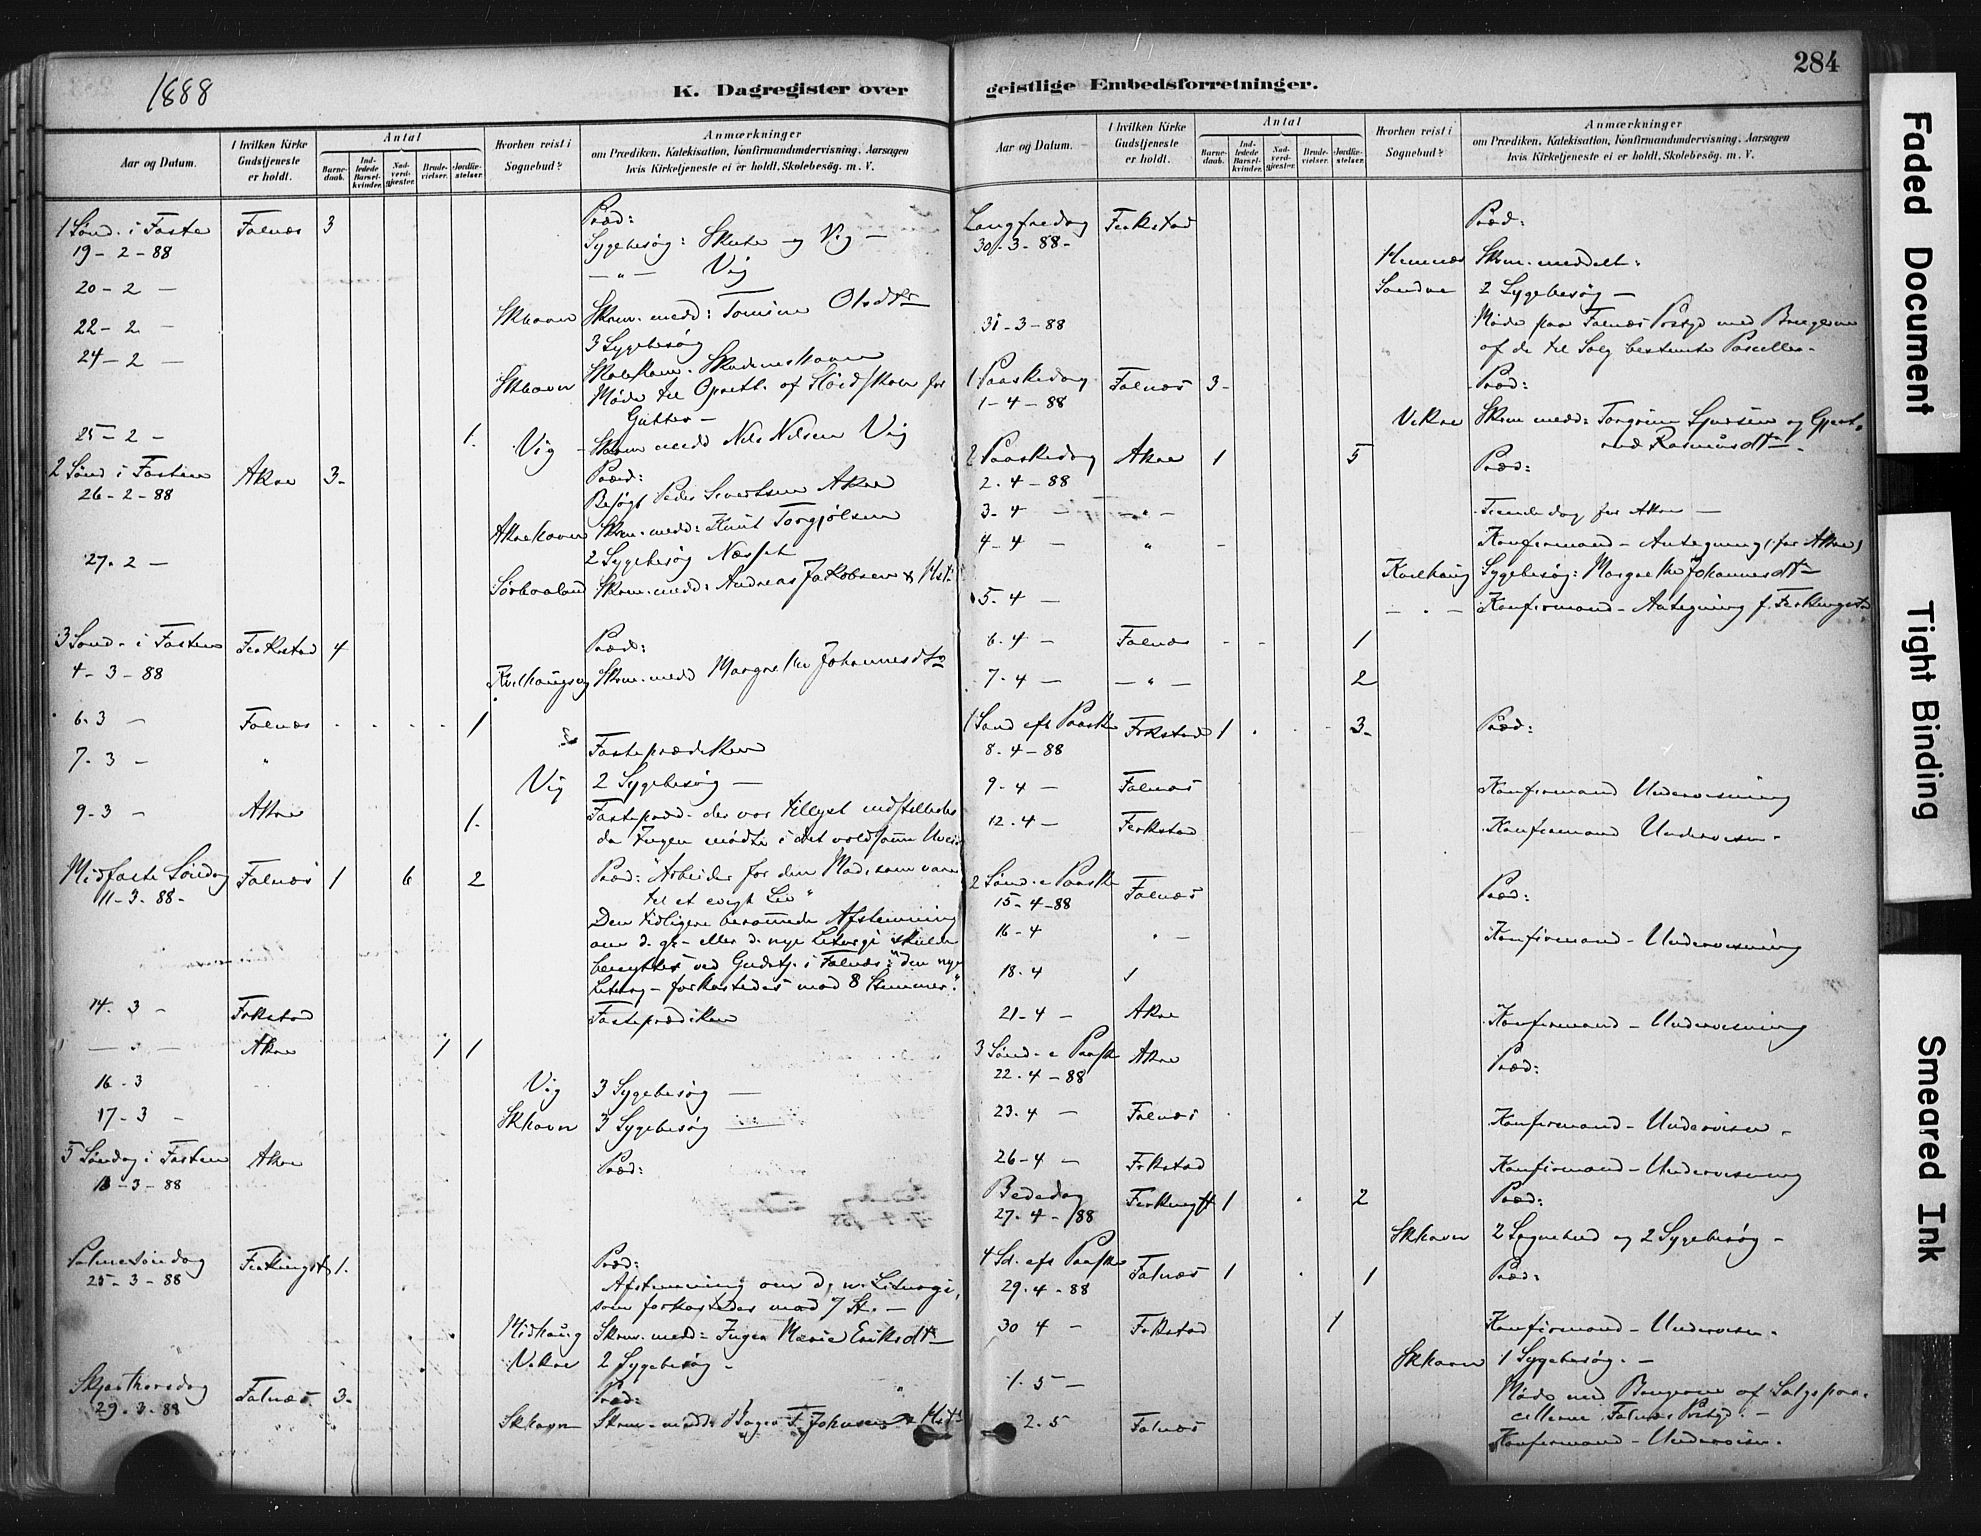 1888
K. Dagregister over
Aar og Datum.
I hvilken Kirke Gudstjeneste er holdt.
Antal
Barne-daab.
Ind-ledede Barsel-kvinder.
Nad-verd-gjester.
Brude-vielser.
Jordfæ-stelser.
Hvorhen reist i Sognebud?
Anmærkninger
om Prædiken, Katekisation, Konfirmandundervisning, Aarsagen
hvis Kirketjeneste ei er holdt, Skolebesög. m. V.
1 Sønd. i Faste Falnæs 3 Præd:
19-2-88 Sygebesøg: Skude og Vig -
- " - Vig
20-2 -
22-2 - Skhavn Skrm. medd: Tomine Olsdtr
3 Sygebesøg
24-2 - Skolekom. Skudeneshavn
Skhavn Møde til Opretl. af Sløidskole for
Gutter -
25-2 - 1. Vig Skrm medd Nils Nilsen Vig
2 Sønd i Fasten Akre 3- Præd:
26-2-88 Besøgt Peder Sivertsen Akre
Akrehavn Skrm. medd: Knut Torgjølsen
27-2 - 2 Sygebesøg
Sørbraaland Skrm. medd: Andreas Jakobsen & Hst
3 Sønd. i Fasten Ferkstad 4 Præd:
4-3-88 Kvelhaugsvg Skrm. medd Margrethe Johannesdtr
6-3 - Falnæs 1
7-3 - " Fasteprædiken
Vig 2 Sygebesøg -
9-3 - Akre 1. Fastepræd. der var tillyst indstilledes
da Ingen mødte i det voldsomme Uveir
Midfaste Søndag Falnæs 1 6 2 Præd: "Arbeider for den Mad, som varer
11-3-88- til et evigt Liv"
Den tidligere berammede Afstemning
om d. gl- eller d. nye Liturgi skulde
benyttes ved Gudstj. i Falnæs: "den nye
Liturg- forkastedes mod 8 Stemmer."
14-3 - Frkstad Fasteprædiken
- " - Akre 1 1
16-3 Vig 3 Sygebesøg -
17-3 - Skhavn 3 Sygebesøg
5 Søndag i Fasten Akre Præd:
18-3-88
Palmesøndag Ferkingst 1. Præd:
25-3-88 Afstemning om d. n. Liturgi,
som forkastedes mod 7 St. -
Midhaug Skrm. medd: Inger Marie Eriksdtr
Vikre 2 Sygebesøg -
Skjærthorsdag Falnæs 3- Præd:
29-3-88 Skhavn Skrm. medd:
284
geistlige Embedsforretninger.
Aar og Datum.
I hvilken Kirke Gudstjeneste er holdt.
Antal
Barne-daab.
Ind-ledede Barsel-kvinder.
Nad-verd-gjester.
Brude-vielser.
Jordfæ-stelser.
Hvorhen reist i Sognebud?
Anmærkninger
om Prædiken, Katekisation, Konfirmandundervisning, Aarsagen
hvis Kirketjeneste ei er holdt, Skolebesög. m. V.
Langfredag Ferkstad Præd:
30-3-88-
Hemnæs Skrm. meddelt:
Sandve 2 Sygebesøg -
31-3-88 Møde paa Falnæs Prstgd med Brugerne
af de til Salg bestemte Parceller.
1 Paaskedag Falnæs 3- Præd:
1-4-88
Vikre Skrm medd: Torgrim Sjursen og
Rasmusdtr.
2 Paaskedag Akre 1 5 Præd:
2-4-88
3-4 - - " - Tiendedag for Akre -
4-4 - " - Konfirmand-Antegning (for Akre)
Kvelhaug Sygebesøg: Margrethe Johannesdtr
5-4 - - . - Konfirmand-Antegning f. Ferkingstd
6-4 - Falnæs 1
7-4 - - " - 2
1 Sønd eft Paaske Frkstad 1 3- Præd:
8-4-88
9-4 - Falnæs Konfirmand Undervisning
12-4 - Ferkstad Konfirmand Undervisn-
2 Sønd. e Paaske Falnæs Præd:
15-4-88
16-4 " - Konfirmand-Undervisning
18-4
21-4 - Akre Konfirmand-Undervisning
3 Sønd. e Paaske Akre Præd:
22-4-88
23-4 - Falnæs Konfirmand-Undervisn-
26-4 - Frkstad Konfirmand-Undervisning
Bededag Ferkingst 1 2 Præd:
27-4-/88
Skhavn 2 Sognebud og 2 Sygebesøg -
4 Sd. eft Paaske Falnæs 1 1 Præd:
29-4-88
30 4 - Frkstad 1 Konfirmand-Undervisn-
Skhavn 1 Sygebesøg. -
1-5 - Møde med Brugerne af Salgspar-
cellerne Falnæs Prstgd. -
2-5 Falnæs Konfirmand-Undervisn.
Faded Document
Tight Binding
Smeared Ink